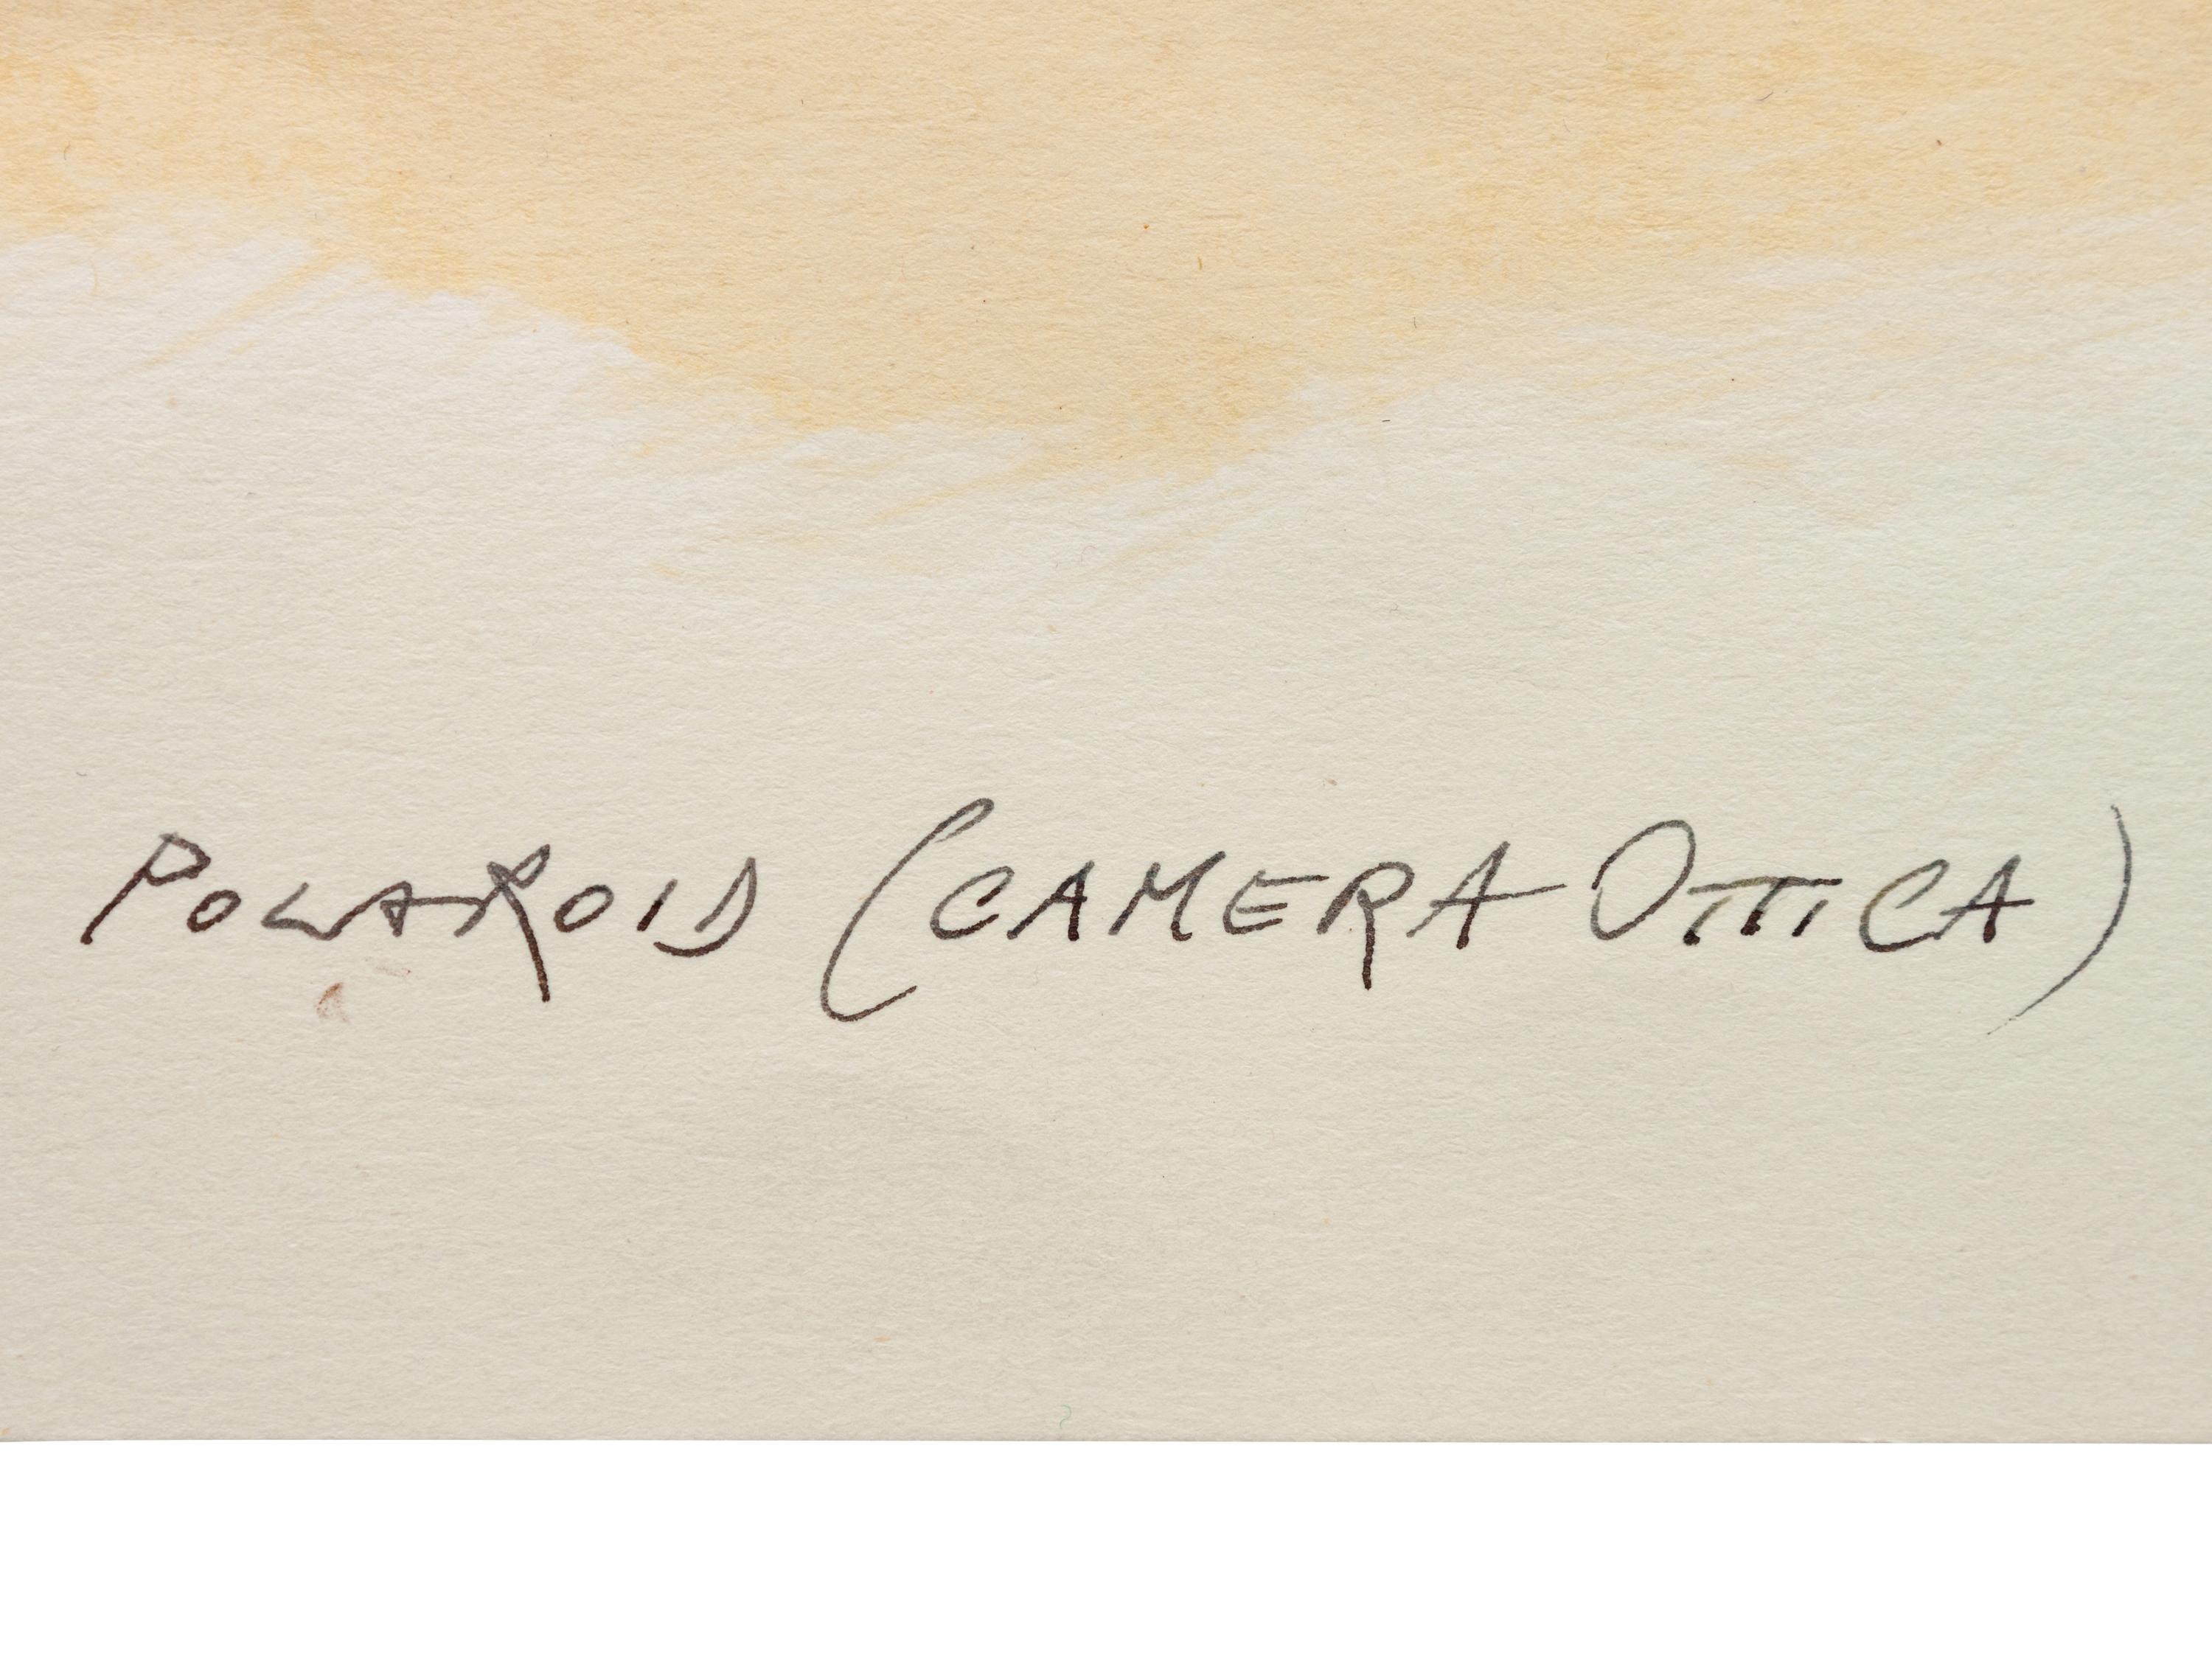 POLAROID (CAMERA OTTICA)